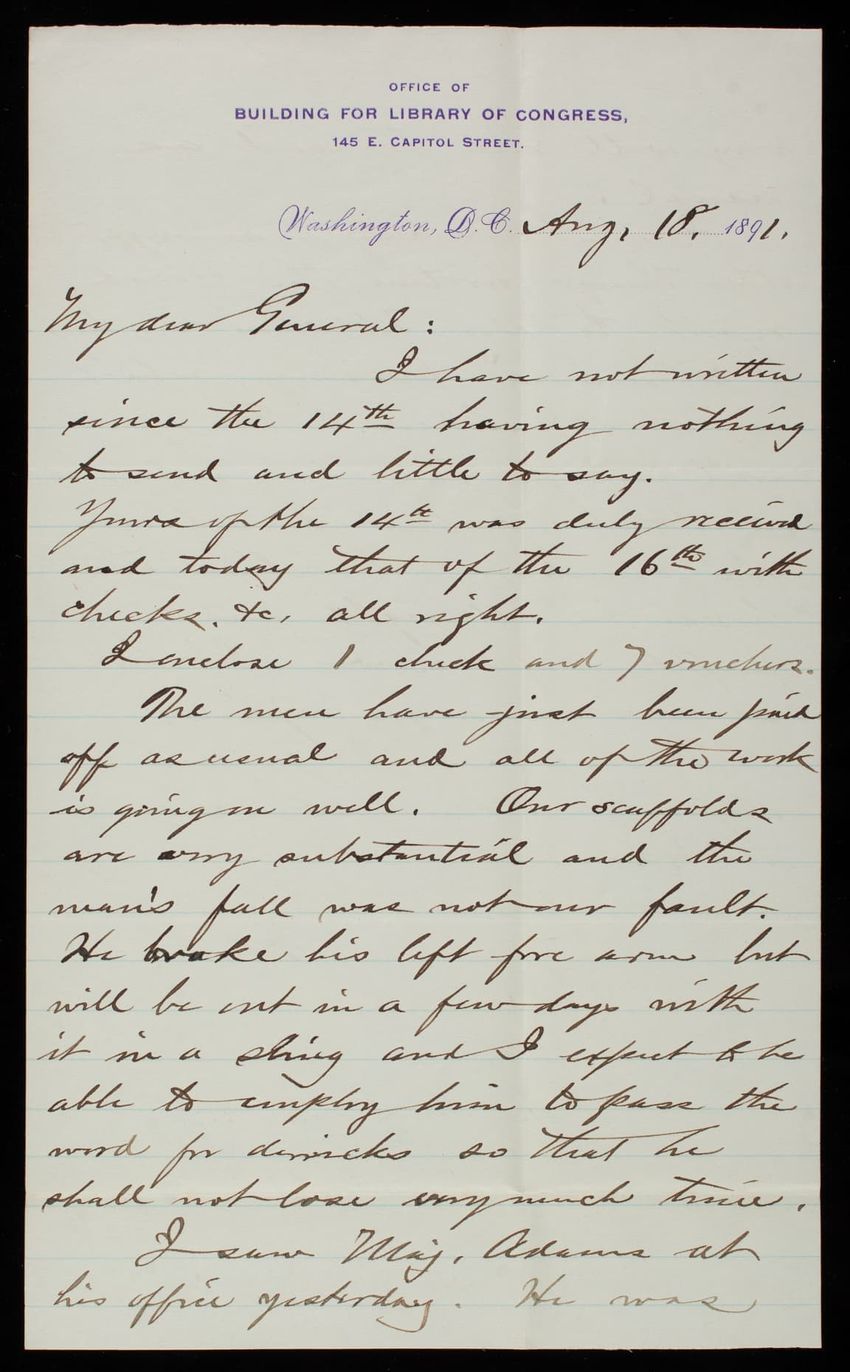 OFFICE OF
BUILDING FOR LIBRARY OF CONGRESS,
145 E. CAPITOL STREET.
Washington, D.C. Aug, 18, 1891.
My dear General:
I have not written
since the 14th having nothing
to send and little to say.
Yours of the 14th was duly received
and today that of the 16th with
checks, &c, all right.
I enclose 1 check and 7 vouchers.
The men have just been paid
off as usual and all of the work
is going on well. Our scaffolds
are very substantial and the
man's fall was not our fault.
He broke his left fore arm but
will be out in a few days with
it in a sling and I expect to be
able to employ him to pass the
word for derricks so that he
shall not lose very much time.
I saw Maj. Adams at
his office yesterday. He was